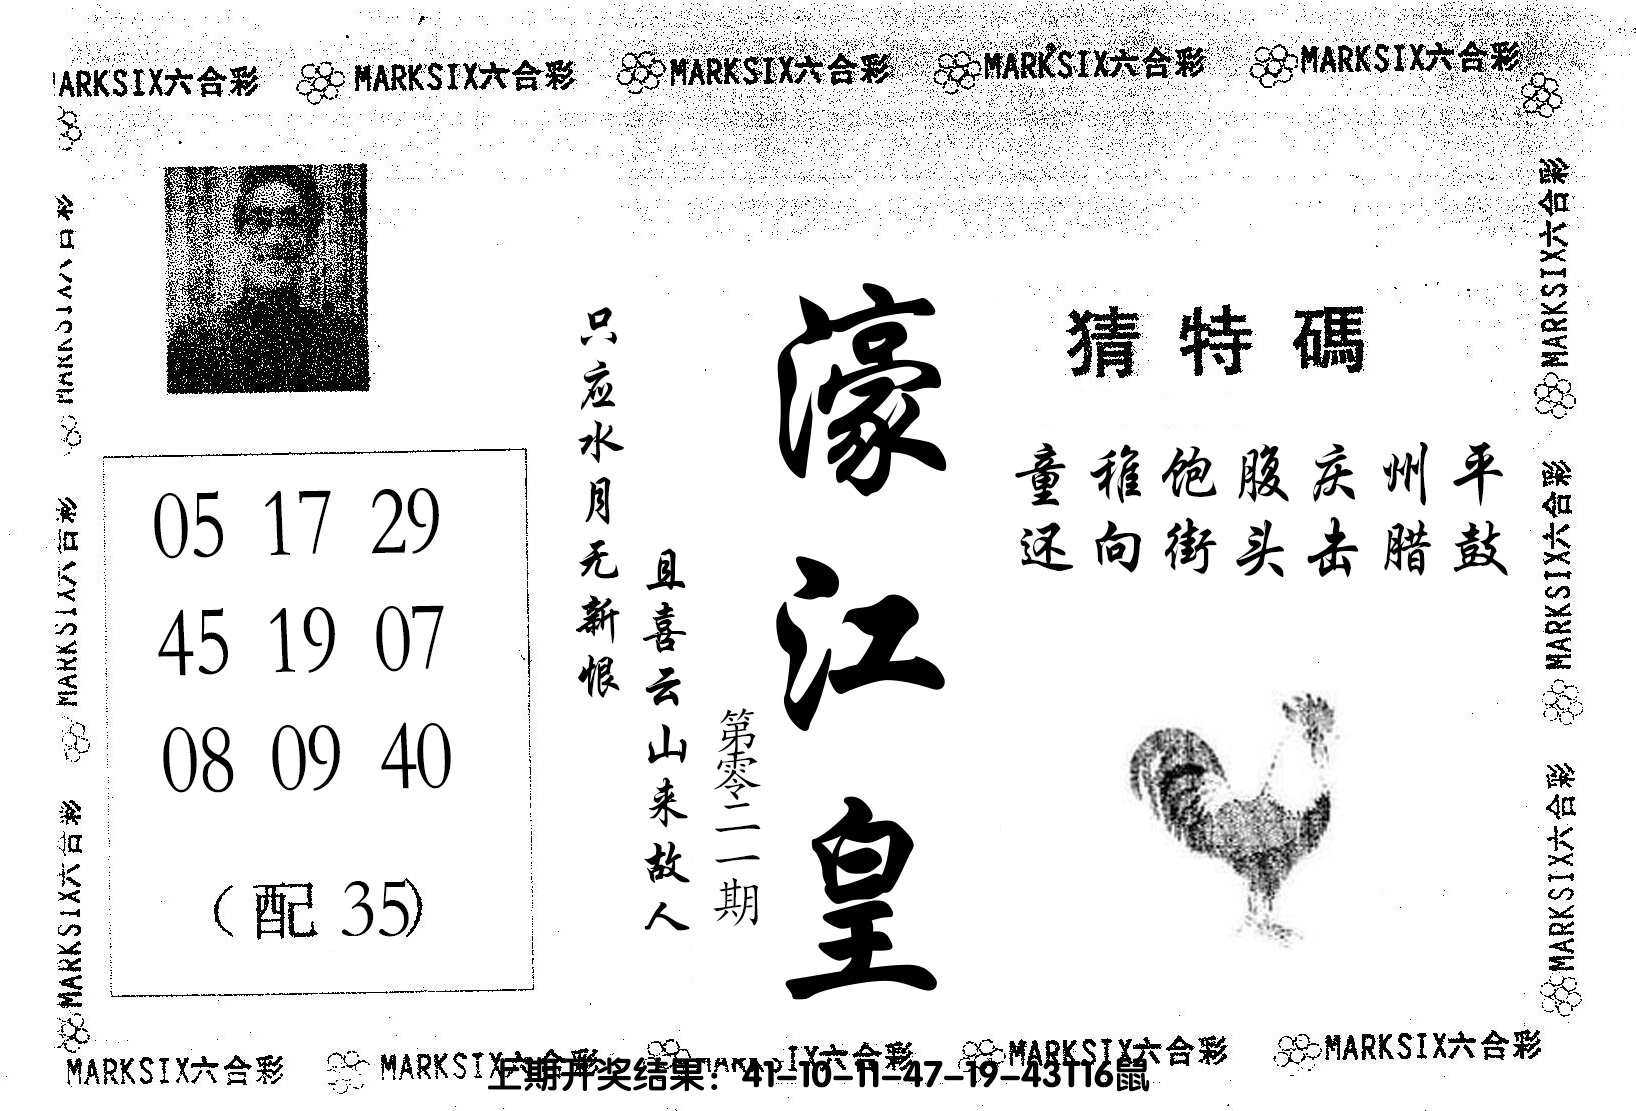 MARKSIX六合彩 MARKSIX六合彩 MARKSIX六合彩 MARKSIX六合彩 MARKSIX六合彩
猜特碼
童稚饱腹庆州平
还向街头击腊鼓
濠江皇
第零二一期
只应水月无新恨
且喜云山来故人
05 17 29
45 19 07
08 09 40
（配 35）
MARKSIX六合彩
MARKSIX六合彩
MARKSIX六合彩
MARKSIX六合彩
MARKSIX六合彩
MARKSIX六合彩
MARKSIX六合彩 MARKSIX六合彩 MARKSIX六合彩 MARKSIX六合彩 MARKSIX六合彩
上期开奖结果：41-10-11-47-19-43T16鼠